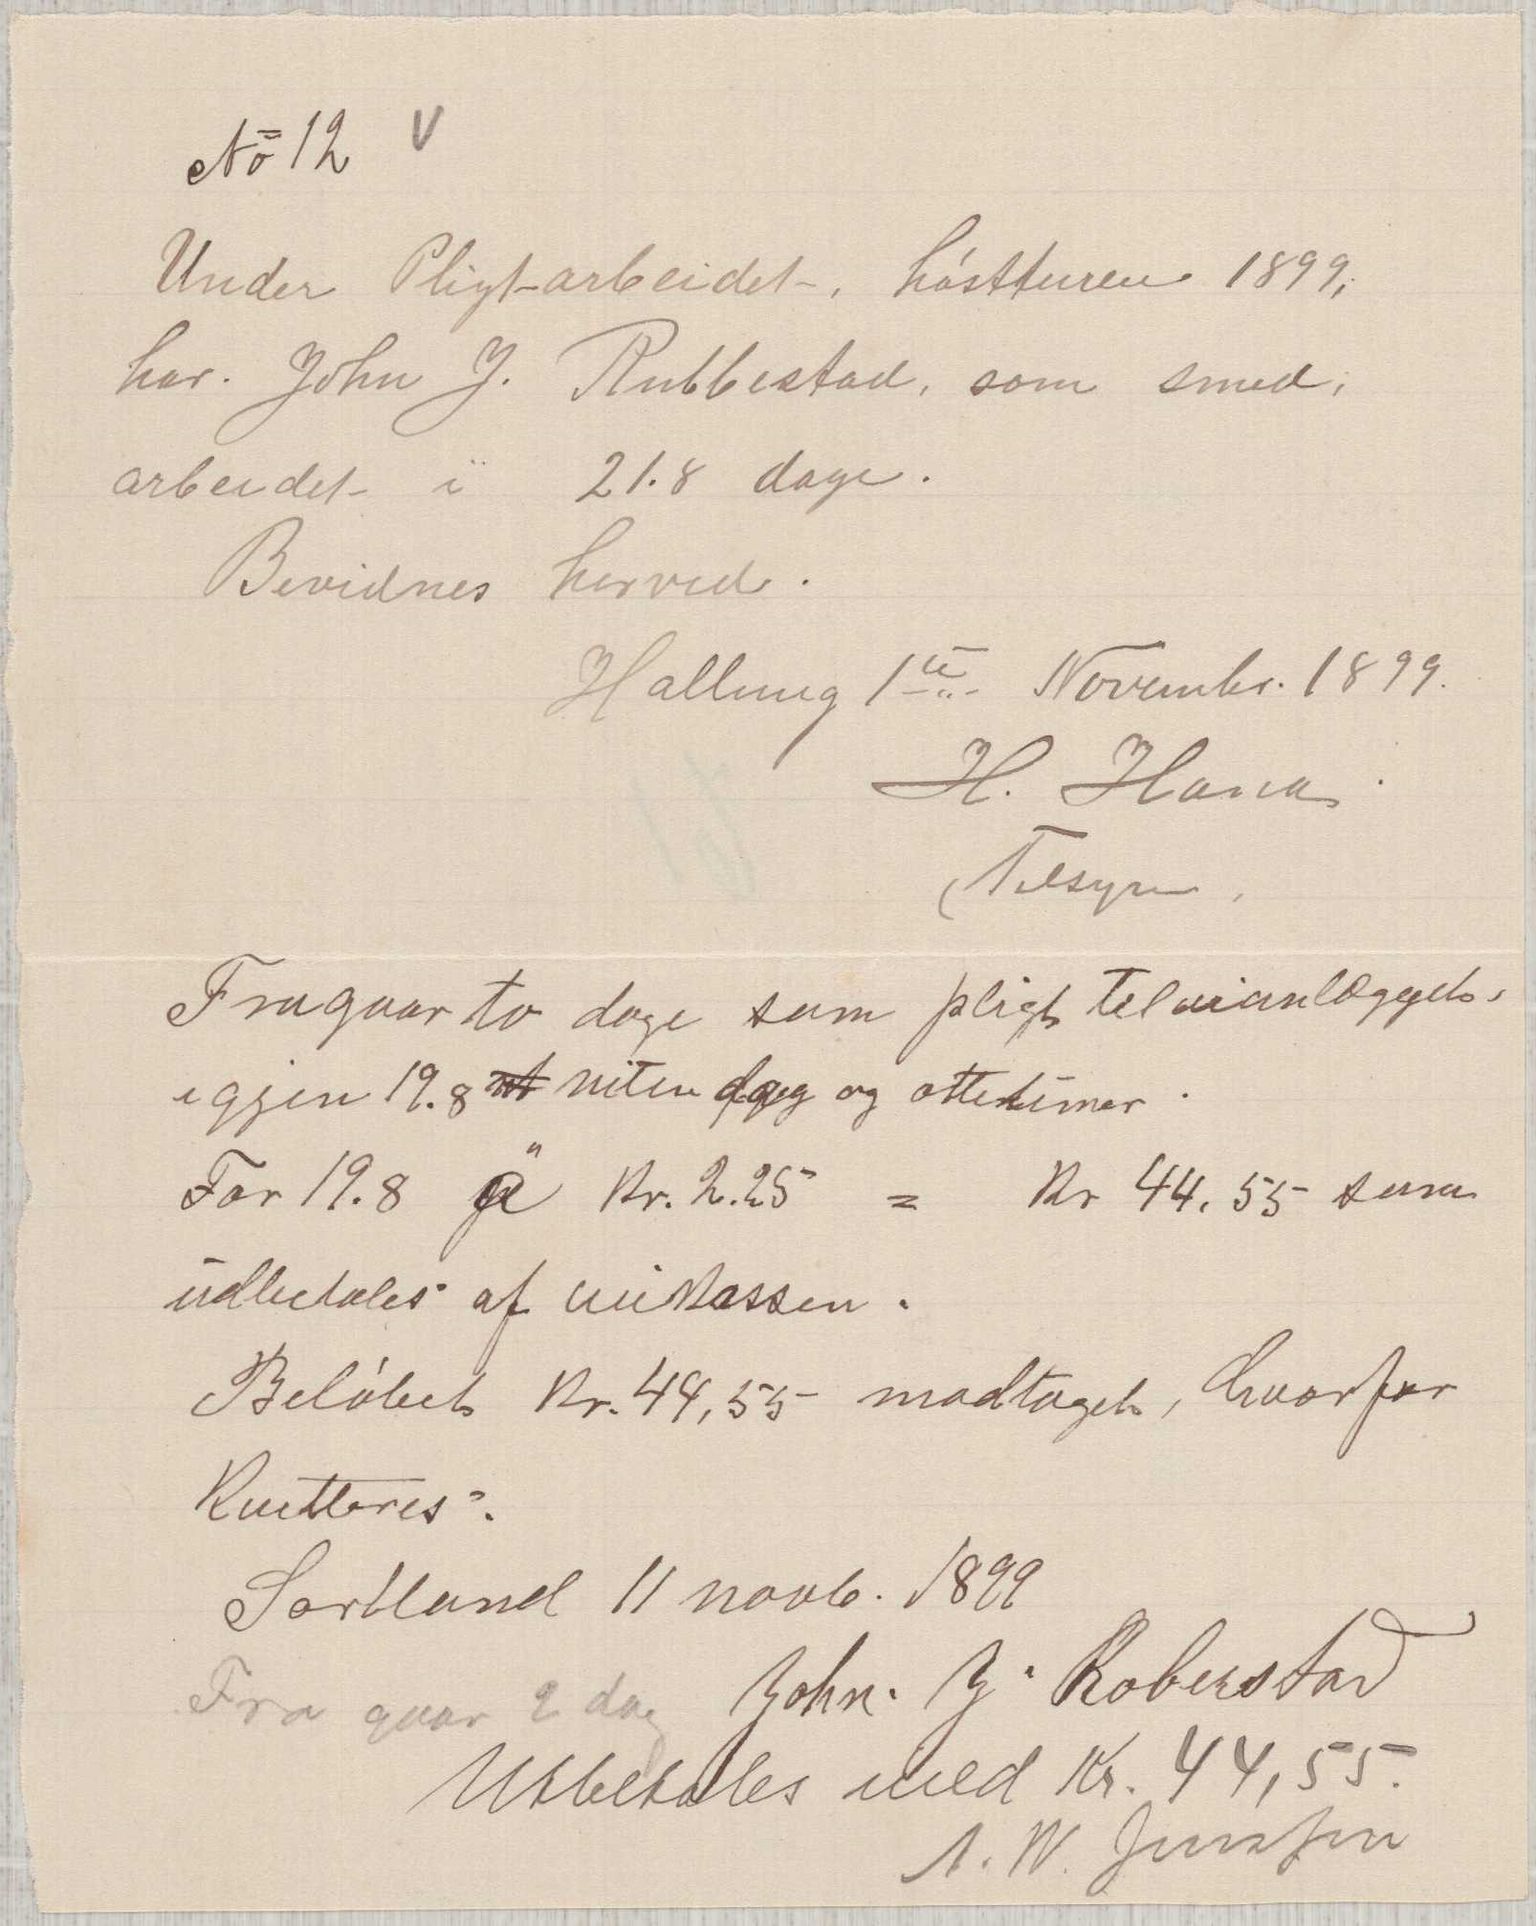 No 12 V
Under Pligt-arbeidet, høstturen 1899,
har. John J. Rubbestad, som smed,
arbeidet i 21.8 dage.
Bevidnes herved.
1te Novembr. 1899.
H. Hana
Tilsyn,
Fragaar to dage som pligt til veianlæggets
igjen 19.8 niten dag og ottetimer.
For 19.8 a Kr. 2.25 = Kr 44,55 som
udbetales af veikassen.
Beløbet Kr. 44,55 modtaget, hvorfor
Kvitteres.
Sortland 11 novb. 1899
Fra gaar 2 dag John. J. Roberstad
Utbetales med Kr. 44,55.